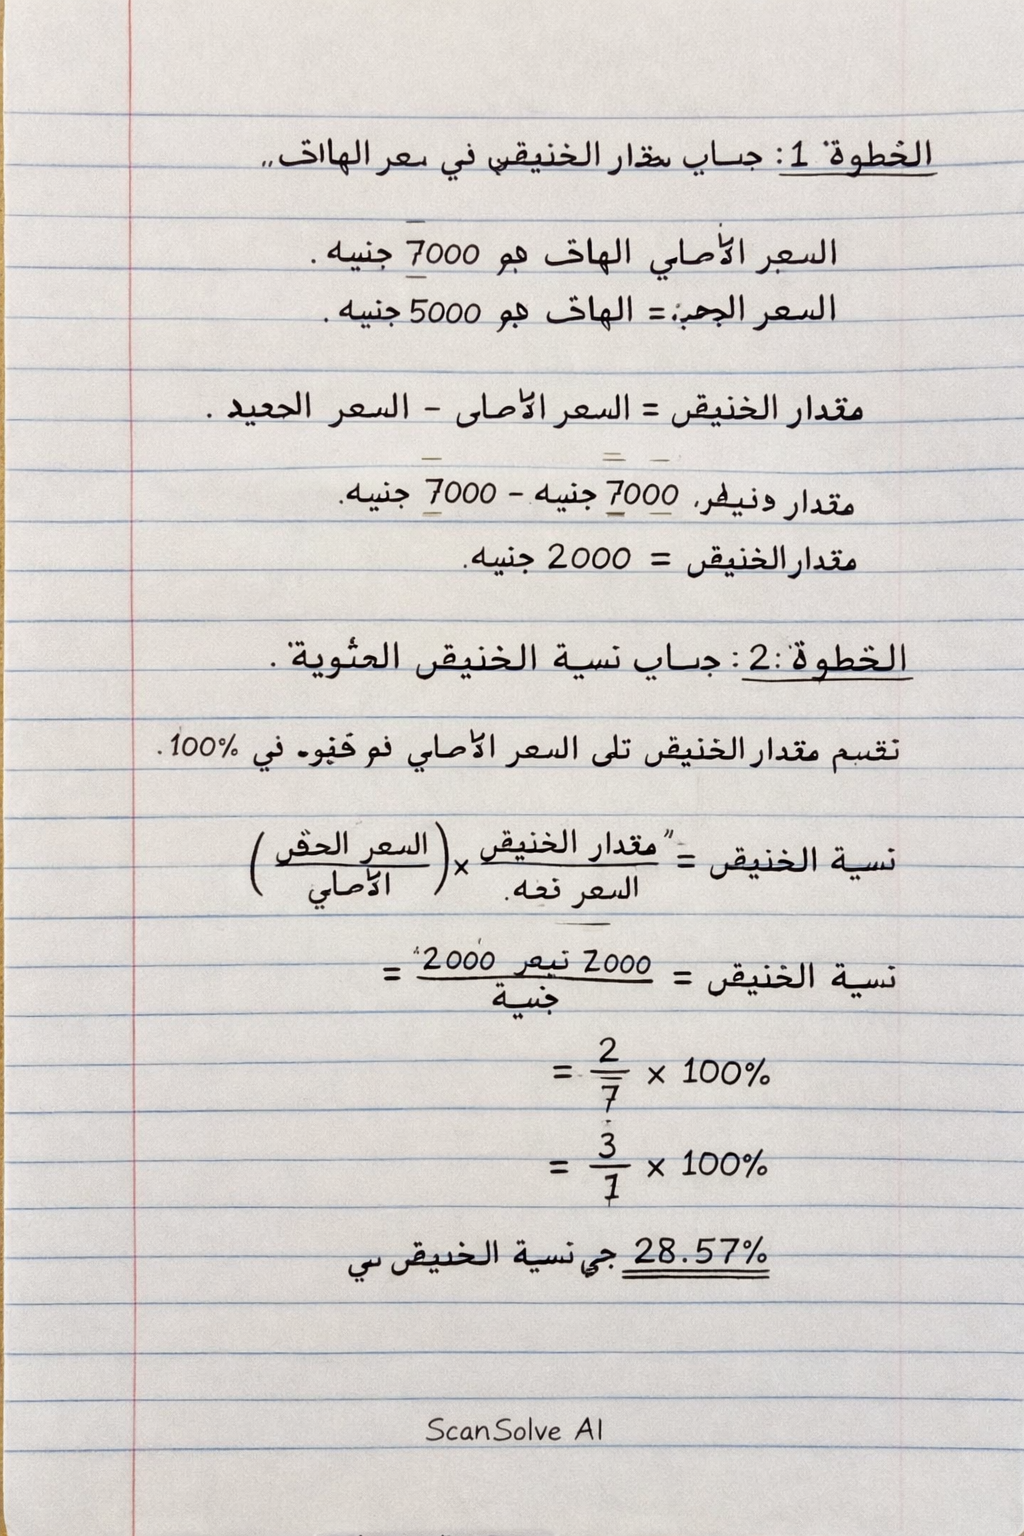 الخطوة 1: حساب مقدار الخنيقص في سعر الهاتف
السعر الأصلي الهاتف هو 7000 جنيه.
السعر = الهاتف هو 5000 جنيه.
مقدار الخنيقص = السعر الأصلى - السعر الحعيد.
مقدار 7000 جنيه - 7000 جنيه.
مقدار الخنيقص = 2000 جنيه.
الخطوة 2: حساب نسية الخنيقص العئوية.
نقسم مقدار الخنيقص تلى السعر الأصلي في 100%.
نسية الخنيقص = مقدار الخنيقص × (السعر الحقص
السعر نعه. الأصلي)
نسية الخنيقص = 2000 2000 =
جنسية
= 2 × 100%
7
= 3 × 100%
1
28.57% جي نسية الخنيقص سي
ScanSolve AI